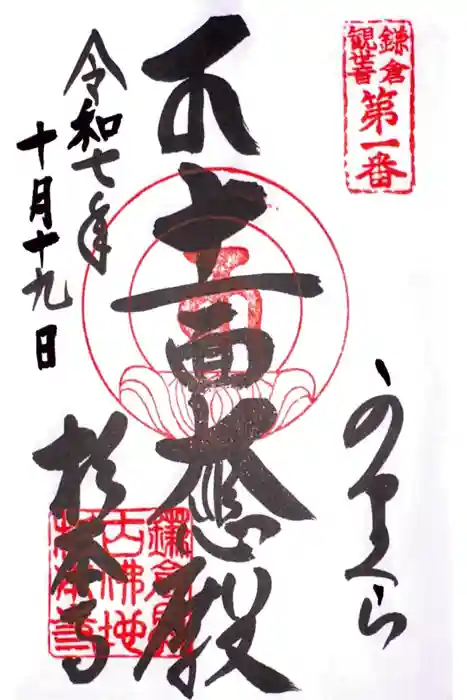 鎌倉
観世音
第一番
かまくら
十一面 殿
令和七年
十月十九日
杉本寺
鎌倉最
古佛地
杉本寺